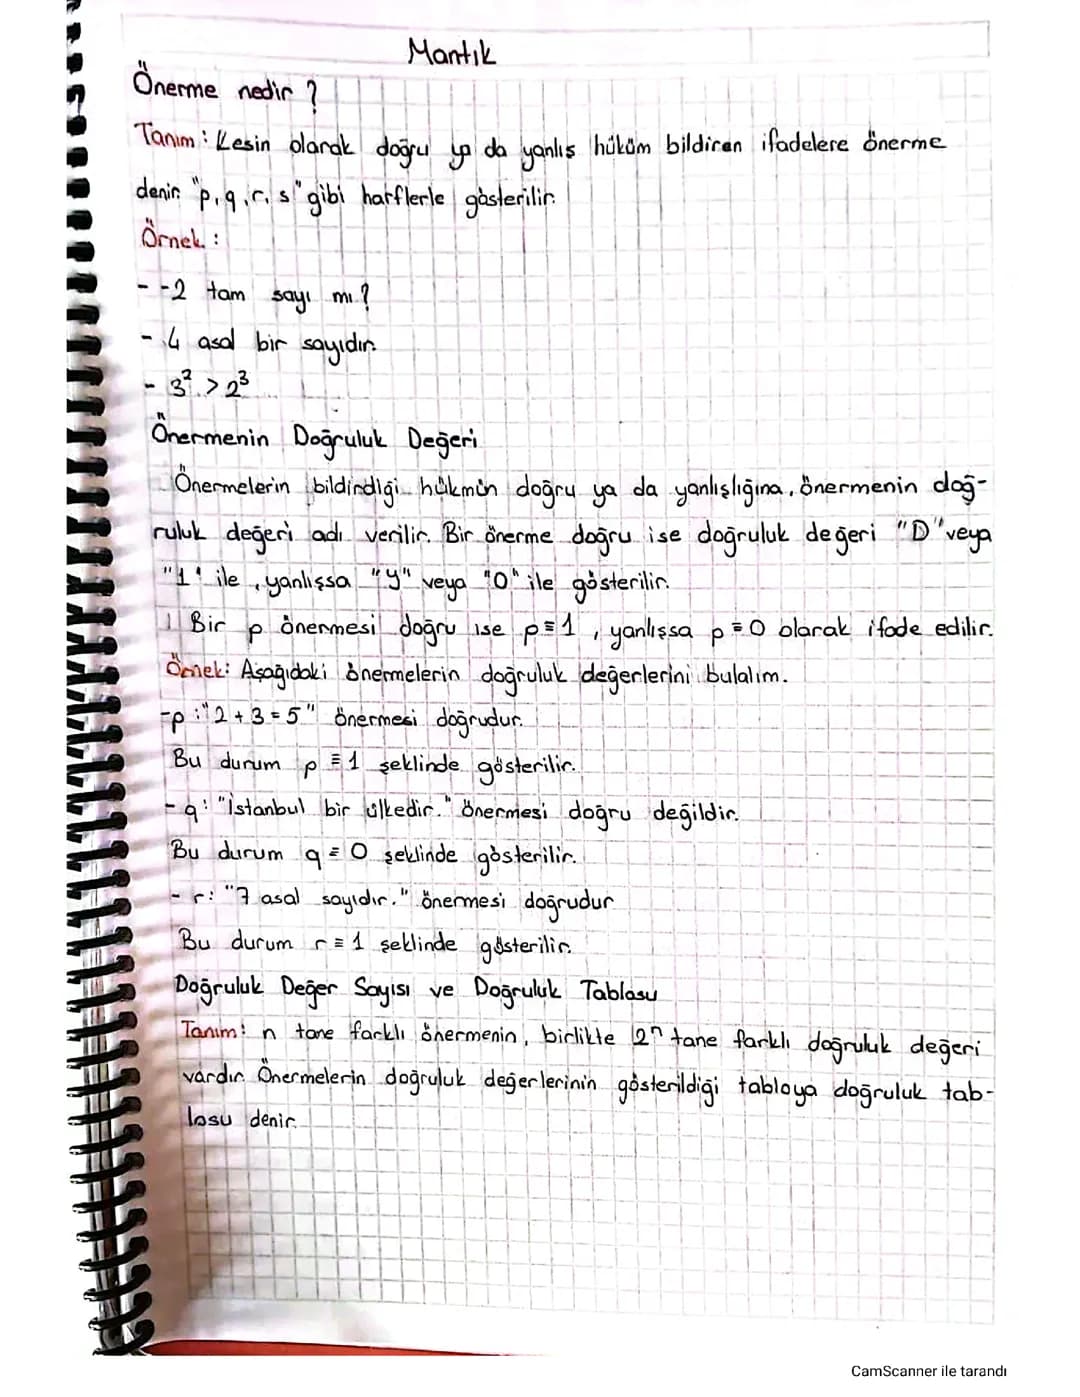 Mantık
Önerme nedir ?
Tanım : Kesin olarak doğru ya da yanlış hüküm bildiren ifadelere önerme
denir. "p, q, r, s" gibi harflerle gösterilir.
Örnek :
- -2 tam sayı mı ?
- 4 asal bir sayıdır.
- 3² > 2³
Önermenin Doğruluk Değeri
Önermelerin bildirdiği hükmün doğru ya da yanlışlığına, önermenin doğ-
ruluk değeri adı verilir. Bir önerme doğru ise doğruluk değeri "D" veya
"1" ile, yanlışsa "Y" veya "0" ile gösterilir.
Bir p önermesi doğru ise p ≡ 1, yanlışsa p ≡ 0 olarak ifade edilir.
Örnek: Aşağıdaki önermelerin doğruluk değerlerini bulalım.
- p : "2 + 3 = 5" önermesi doğrudur.
Bu durum p ≡ 1 şeklinde gösterilir.
- q : "İstanbul bir ülkedir." önermesi doğru değildir.
Bu durum q ≡ 0 şeklinde gösterilir.
- r : "7 asal sayıdır." önermesi doğrudur
Bu durum r ≡ 1 şeklinde gösterilir.
Doğruluk Değer Sayısı ve Doğruluk Tablosu
Tanım: n tane farklı önermenin, birlikte 2ⁿ tane farklı doğruluk değeri
vardır. Önermelerin doğruluk değerlerinin gösterildiği tabloya doğruluk tab-
losu denir.
CamScanner ile tarandı